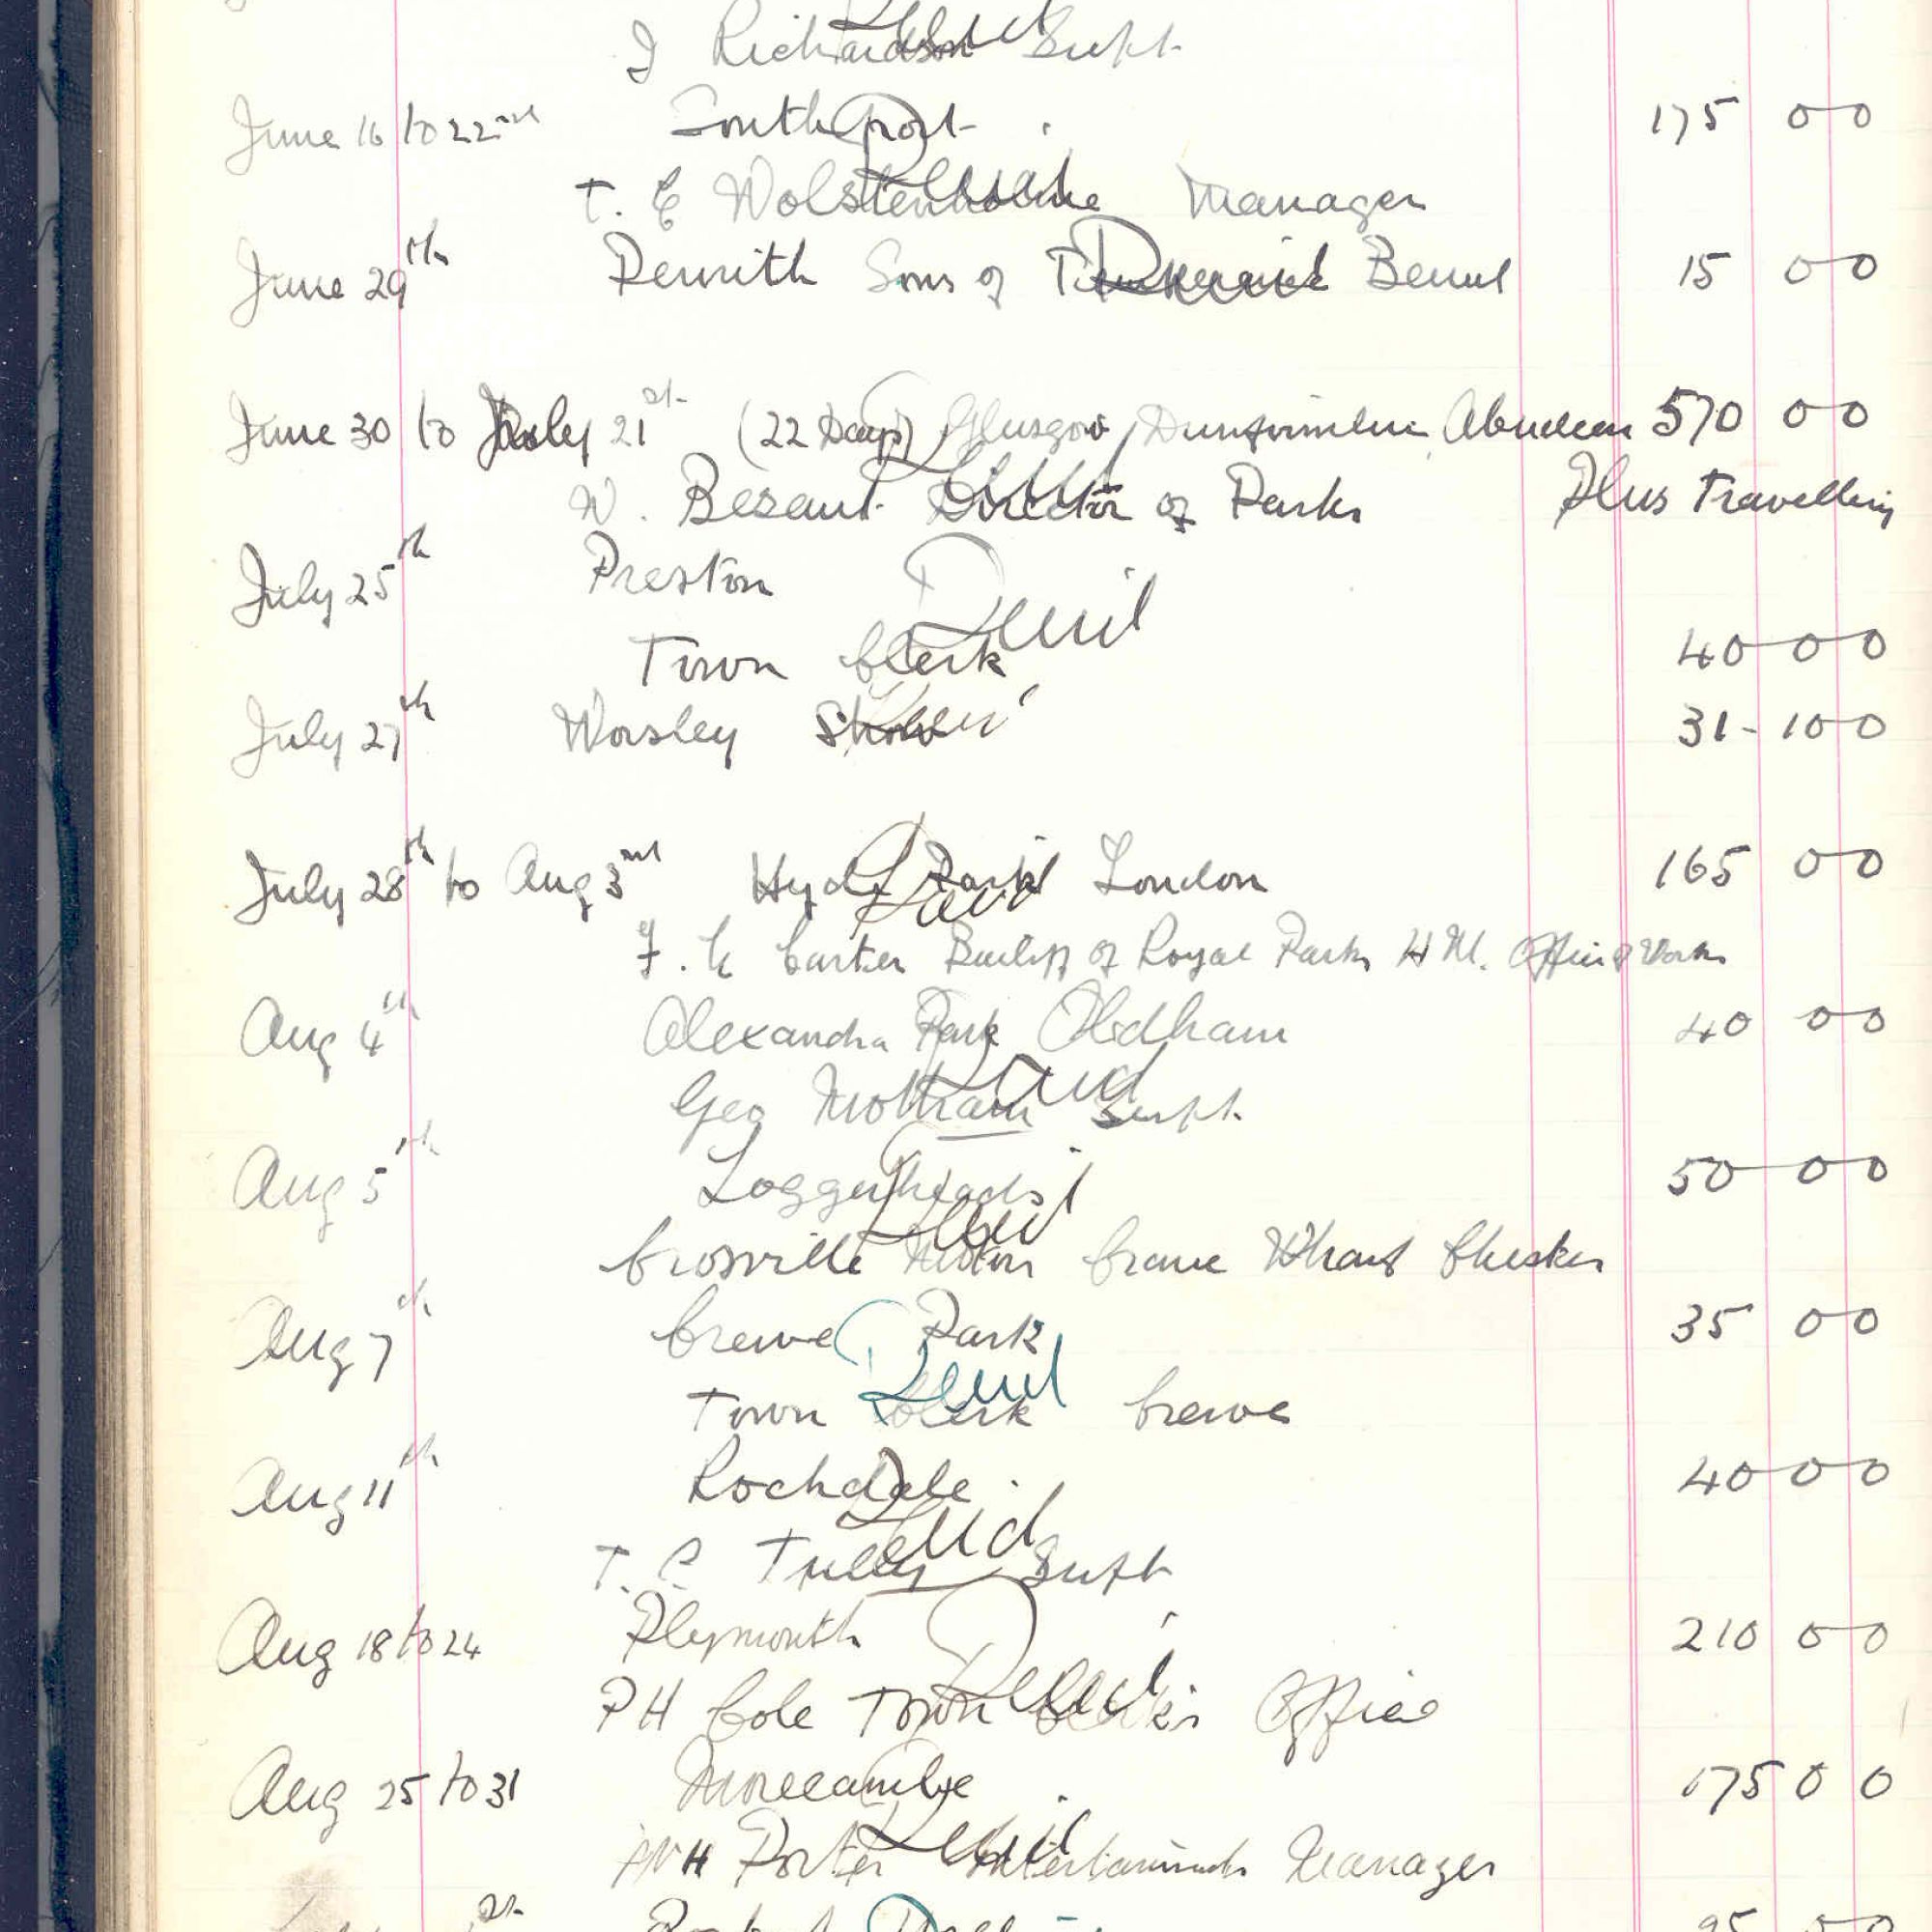 J Richardson Supt
June 16 to 22nd Southport 175 0 0
Paid
T. E Wolstenholme Manager
June 29th Penrith Sons of Temperance Paid 15 0 0
June 30 to July 21st (22 Days) Glasgow, Dunfermline, Aberdeen 570 0 0
Paid
W. Besant Director of Parks Plus Travelling
July 25th Preston
Paid
Town Clerk 40 0 0
July 27th Worsley Show Paid 31-10 0
July 28th to Aug 3rd Hyde Park London 165 0 0
Paid
Carter Bailiff of Royal Parks H M. Office of Works
Aug 4th Alexandra Park Oldham 40 0 0
Paid
Geo Mottram Supt.
Aug 5th Loggerheads 50 0 0
Paid
Crosville Motor Crane Wharf Chester
Aug 7th Crewe Park 35 0 0
Paid
Town Clerk Crewe
Aug 11th Rochdale 40 0 0
Paid
T. Supt
Aug 18 to 24 Plymouth 210 0 0
Paid
P H Cole Town Clerk's Office
Aug 25 to 31 Morecambe 175 0 0
Paid
W H Porter Entertainments Manager